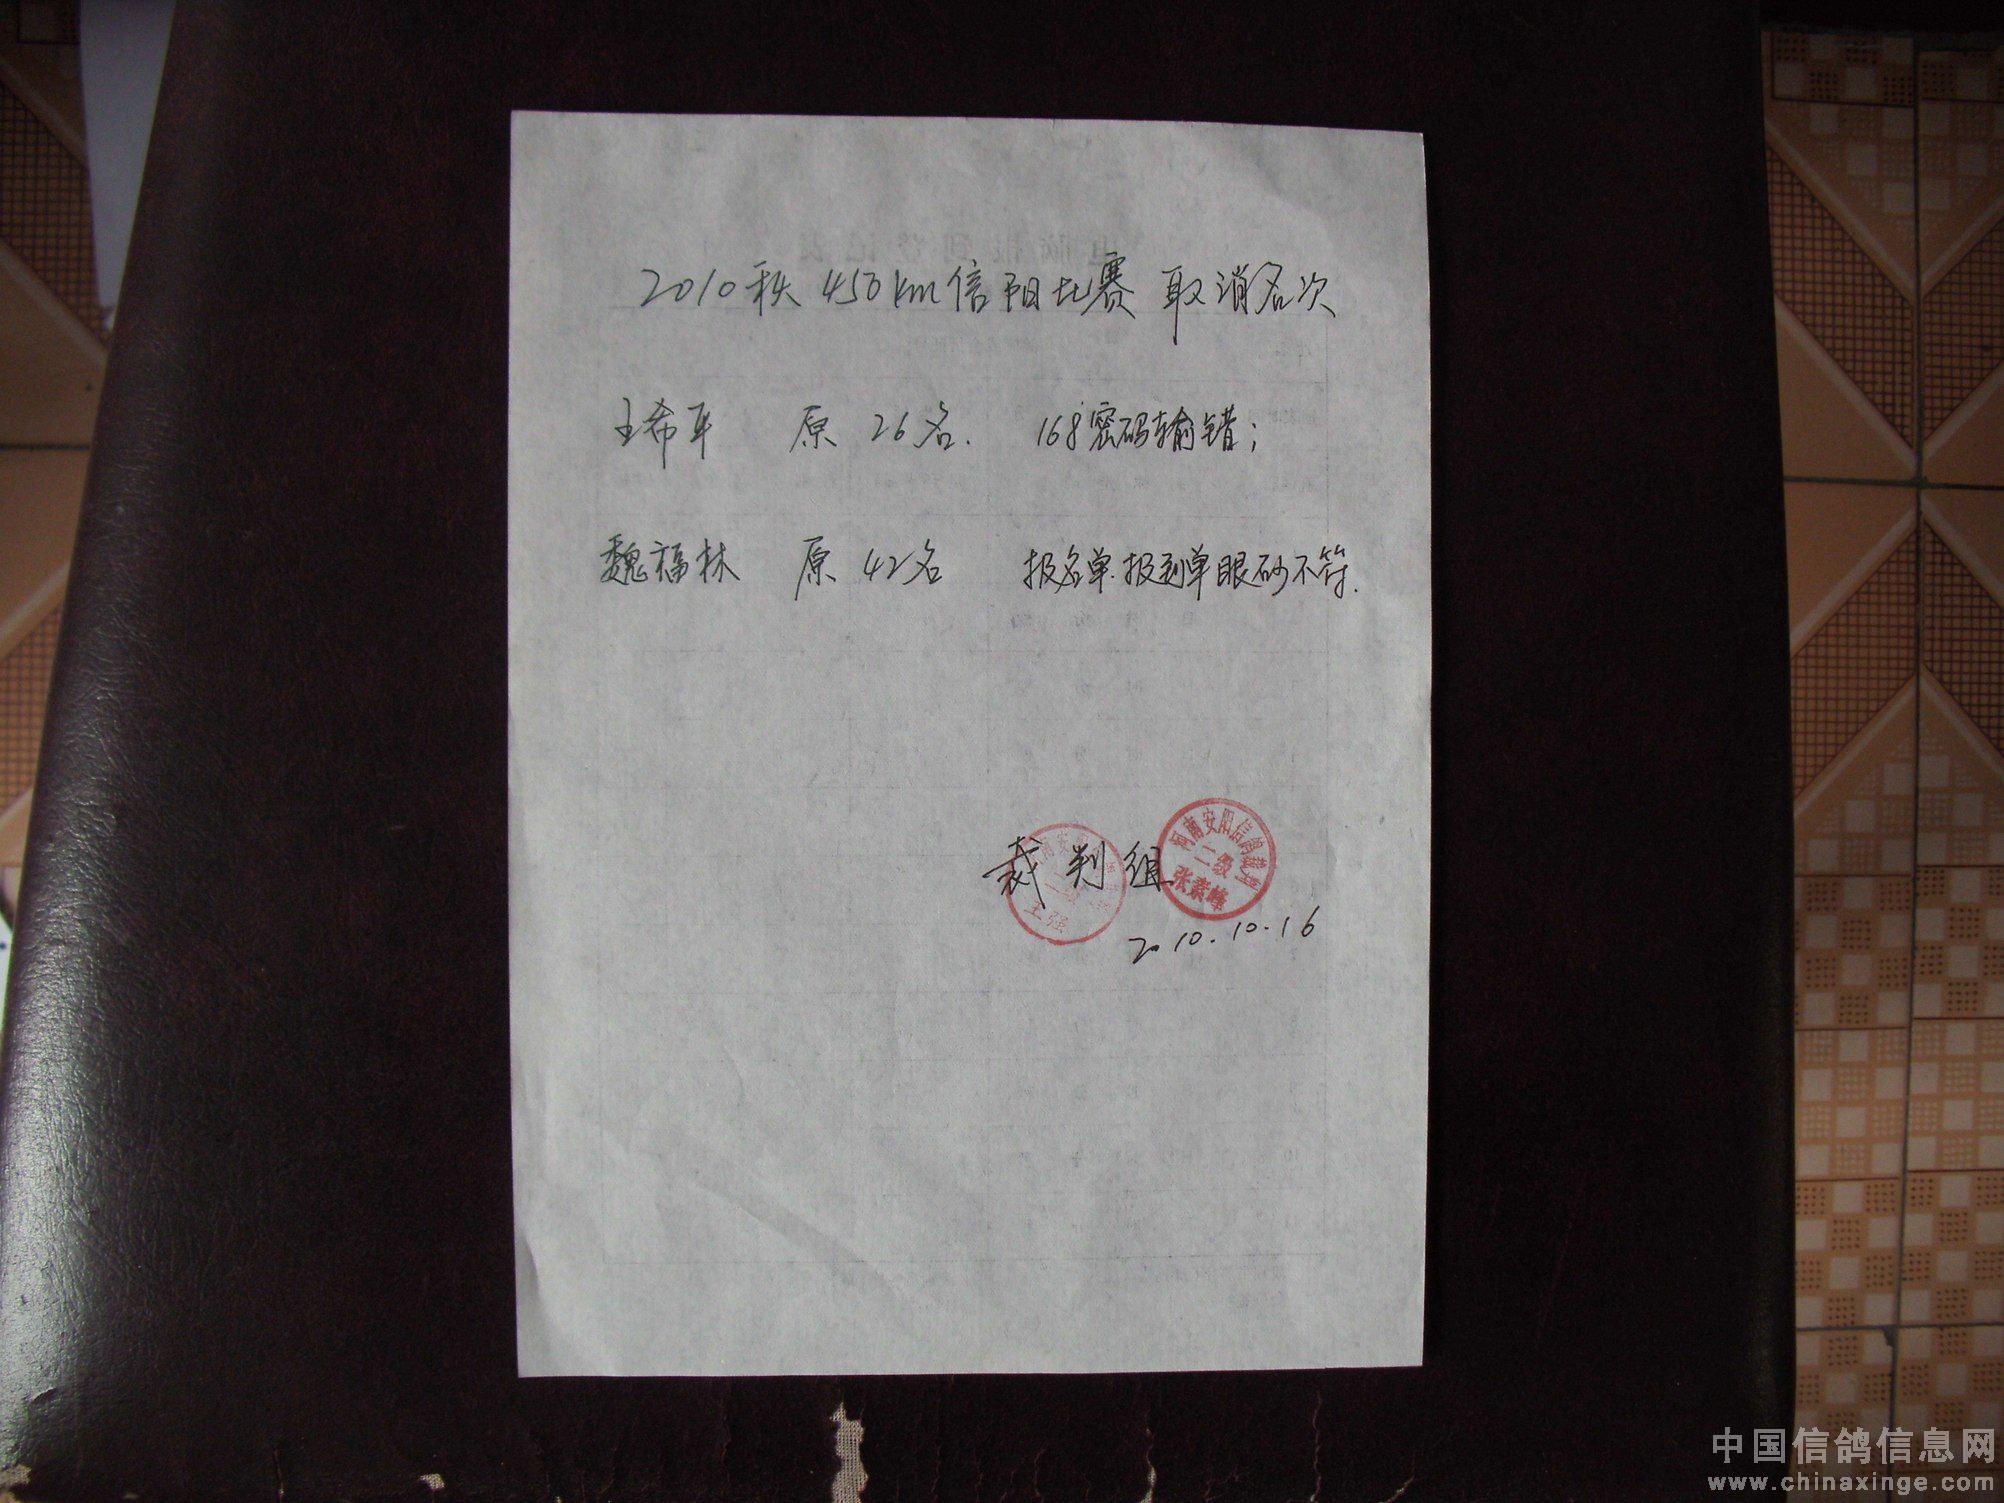 2010秋 450km信阳比赛 取消名次
王希平 原 26名. 168密码输错;
魏福林 原 42名 报名单.报到单眼砂不符.
裁判组
河南安阳信鸽裁判
二级
张素峰
王强
2010.10.16
中国信鸽信息网
www.chinaxinge.com